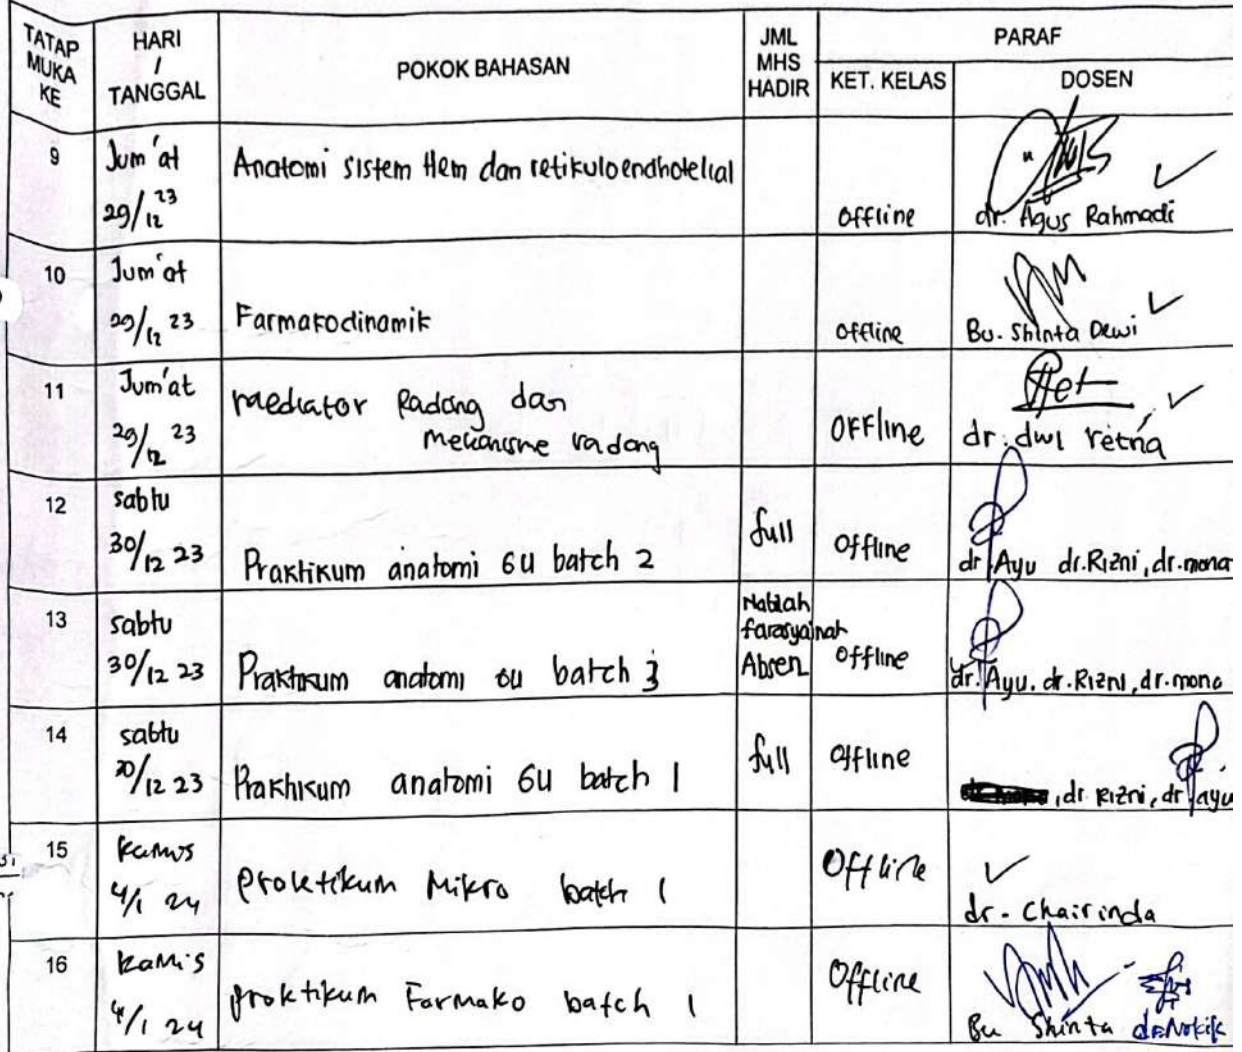 TATAP MUKA KE | HARI / TANGGAL | POKOK BAHASAN | JML MHS HADIR | PARAF
KET. KELAS | DOSEN
9 | Jum'at 29/12 23 | Anatomi sistem Hem dan retikuloendhotelial | | offline | dr. Agus Rahmadi
10 | Jum'at 29/12 23 | Farmakodinamik | | offline | Bu. Shinta Dewi
11 | Jum'at 29/12 23 | mediator Radang dan
mekanisme radang | | OFFline | dr. dwi retna
12 | sabtu 30/12 23 | Praktikum anatomi GU batch 2 | full | offline | dr Ayu dr.Rizni, dr.mona
13 | sabtu 30/12 23 | Praktikum anatomi GU batch 3 | Nablah farasyainah Absen | offline | dr. Ayu. dr.Rizni, dr.mona
14 | sabtu 30/12 23 | Praktikum anatomi GU batch 1 | full | offline | , dr. Rizni, dr ayu
15 | kamis 4/1 24 | praktikum Mikro batch 1 | | Offline | dr. Chairinda
16 | kamis 4/1 24 | praktikum Farmako batch 1 | | Offline | Bu Shinta